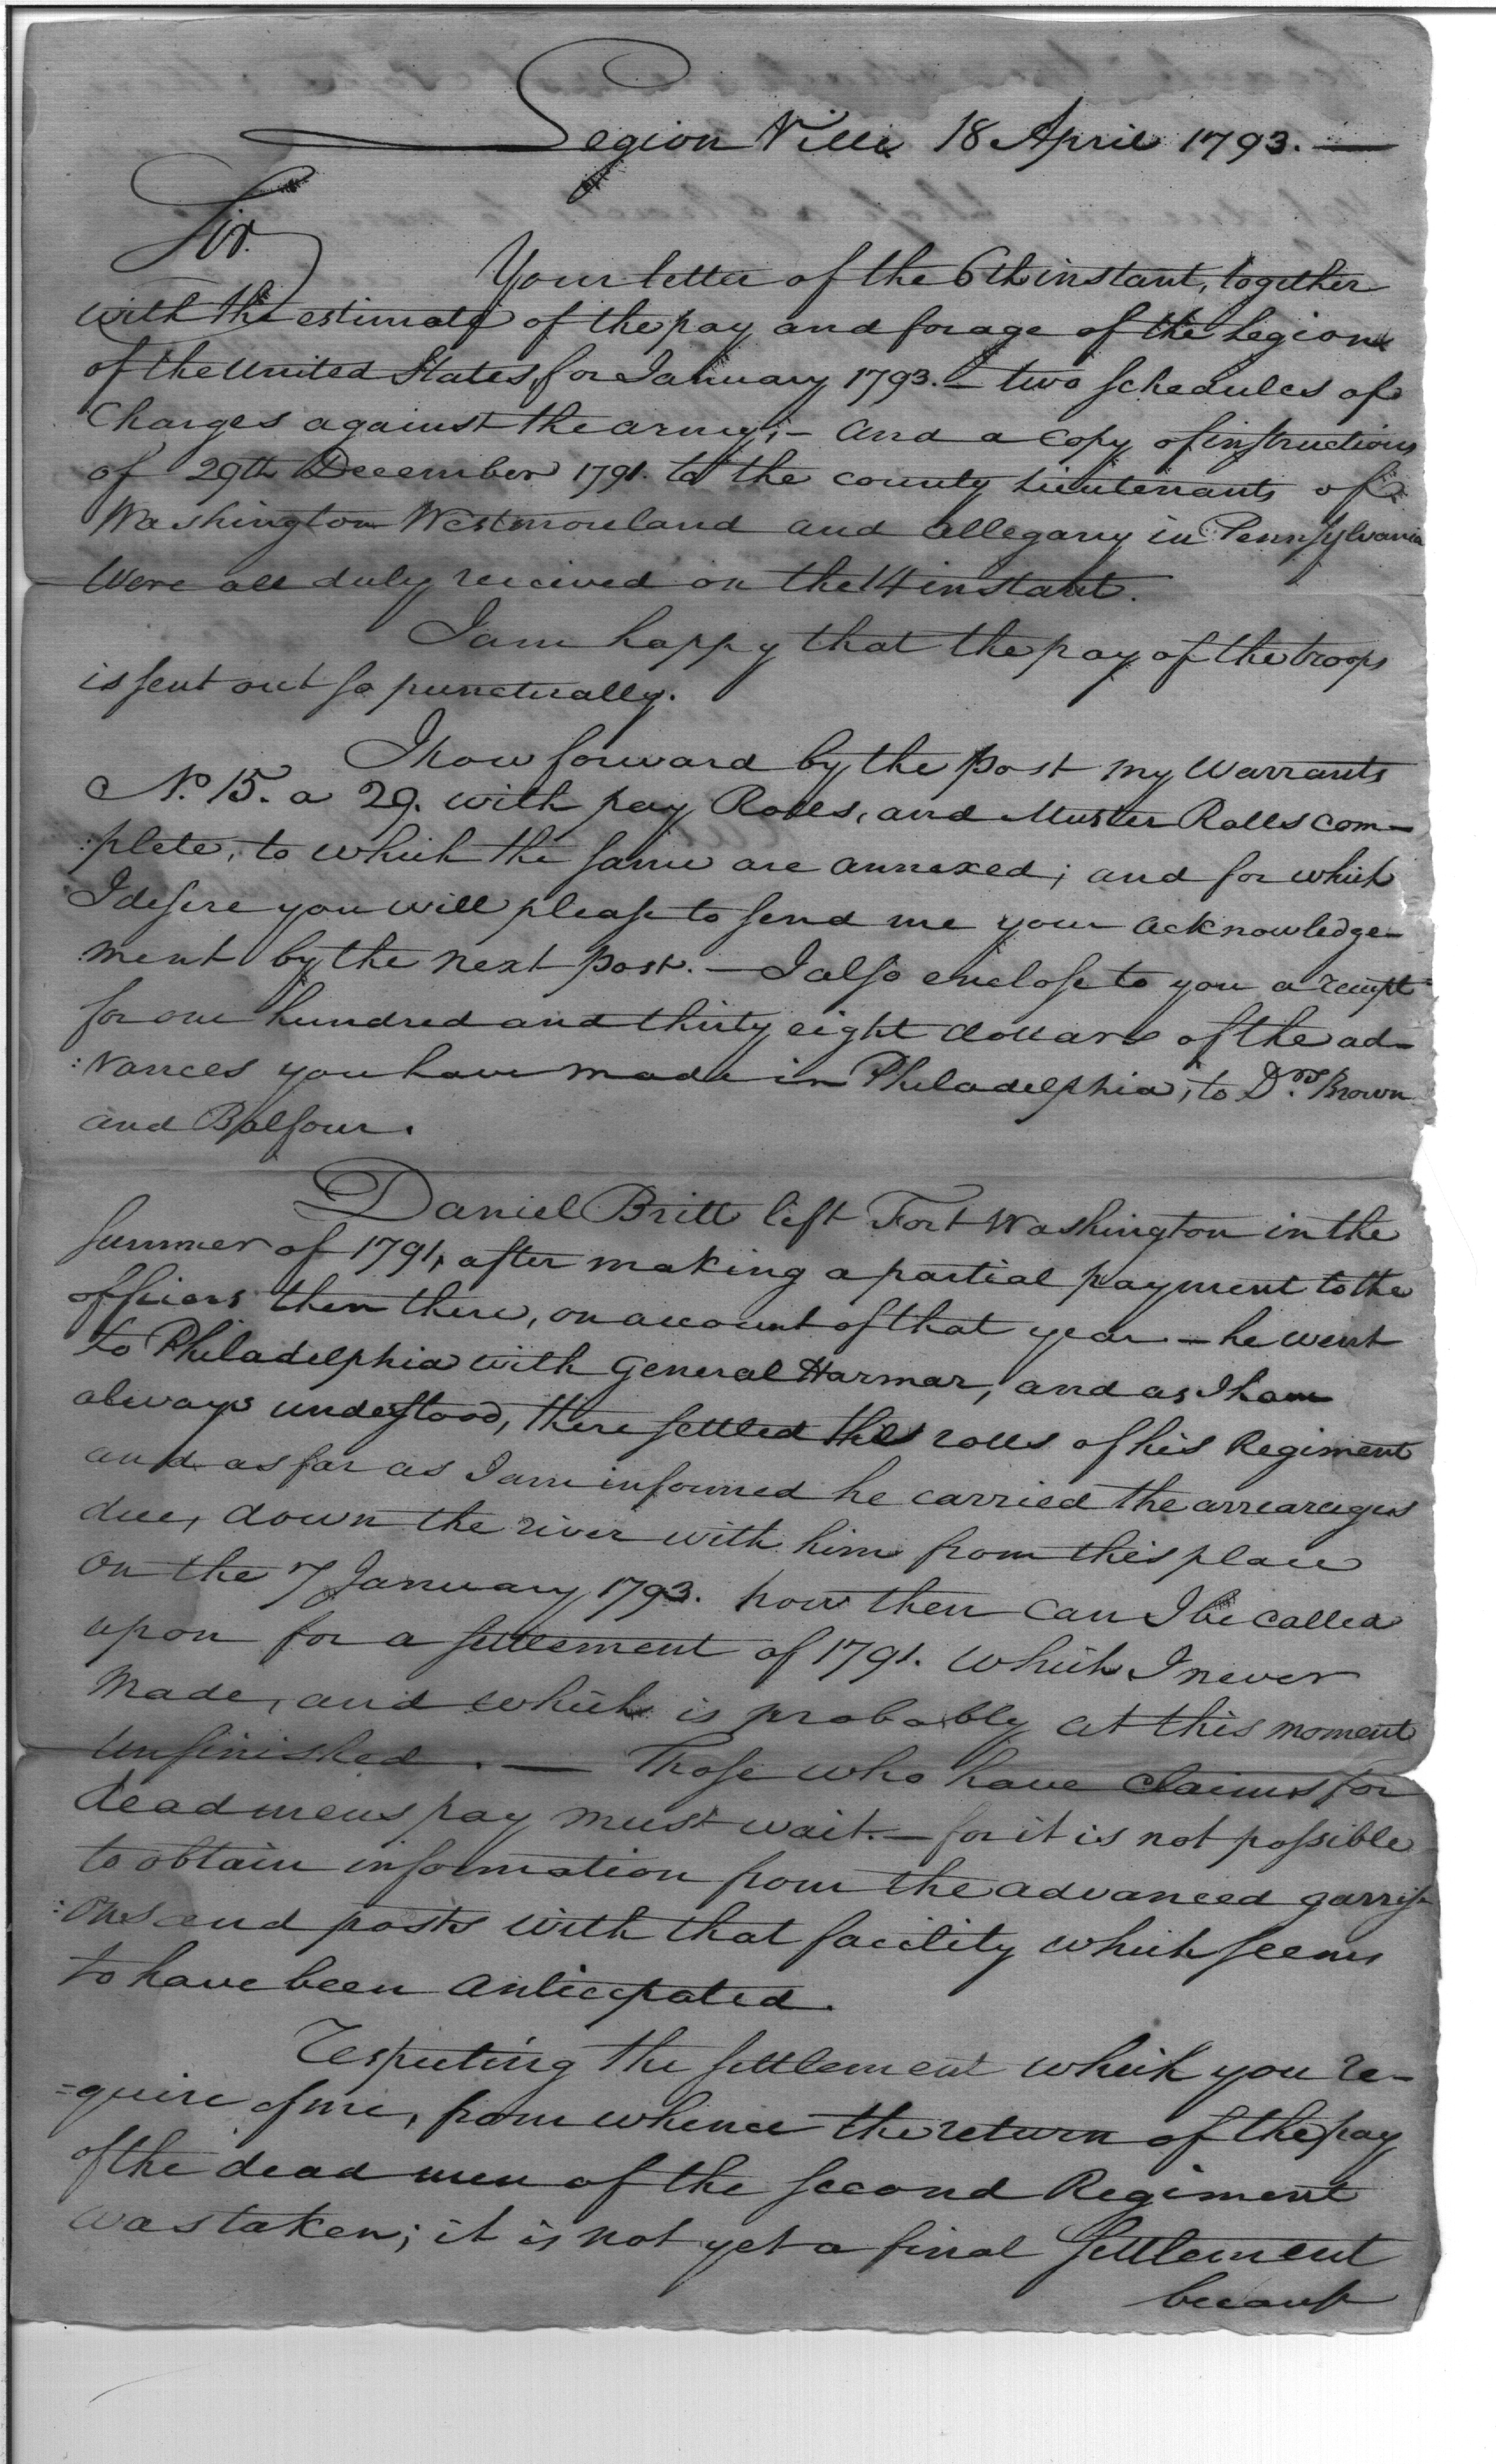 Legion Ville 18 April 1793. —
Sir.
Your letter of the 6th instant, together
with the estimate of the pay and forage of the Legion
of the United States, for January 1793. — two schedules of
Charges against the army; — and a copy of instructions
of 29th December 1791. to the county Lieutenants of
Washington Westmoreland and Allegany in Pennsylvania
Were all duly received on the 14 instant.
I am happy that the pay of the troops
is sent out so punctually.
I now forward by the post my Warrants
No. 15. a 29. with pay Rolls, and Muster Rolls com-
:plete, to which the same are annexed; and for which
I desire you will please to send me your acknowledge-
:ment by the next post. — I also enclose to you a receipt
for one hundred and thirty eight dollars of the ad-
:vances you have made in Philadelphia, to Drs. Brown
and Balfour.
Daniel Britt left Fort Washington in the
summer of 1791, after making a partial payment to the
officers then there, on account of that year — he went
to Philadelphia with General Harmar, and as I have
always understood, there settled the rolls of his Regiment
and as far as I am informed he carried the arrearages
due, down the river with him from this place
on the 7 January 1793. how then can I be called
upon for a settlement of 1791. which I never
made, and which is probably at this moment
unfinished. — Those who have claims for
dead mens pay must wait. — for it is not possible
to obtain information from the advanced garris-
:ons and posts with that facility which seems
to have been anticipated.
Respecting the settlement which you re-
=quire of me, from whence the return of the pay
of the dead men of the second Regiment
was taken; it is not yet a final settlement
because